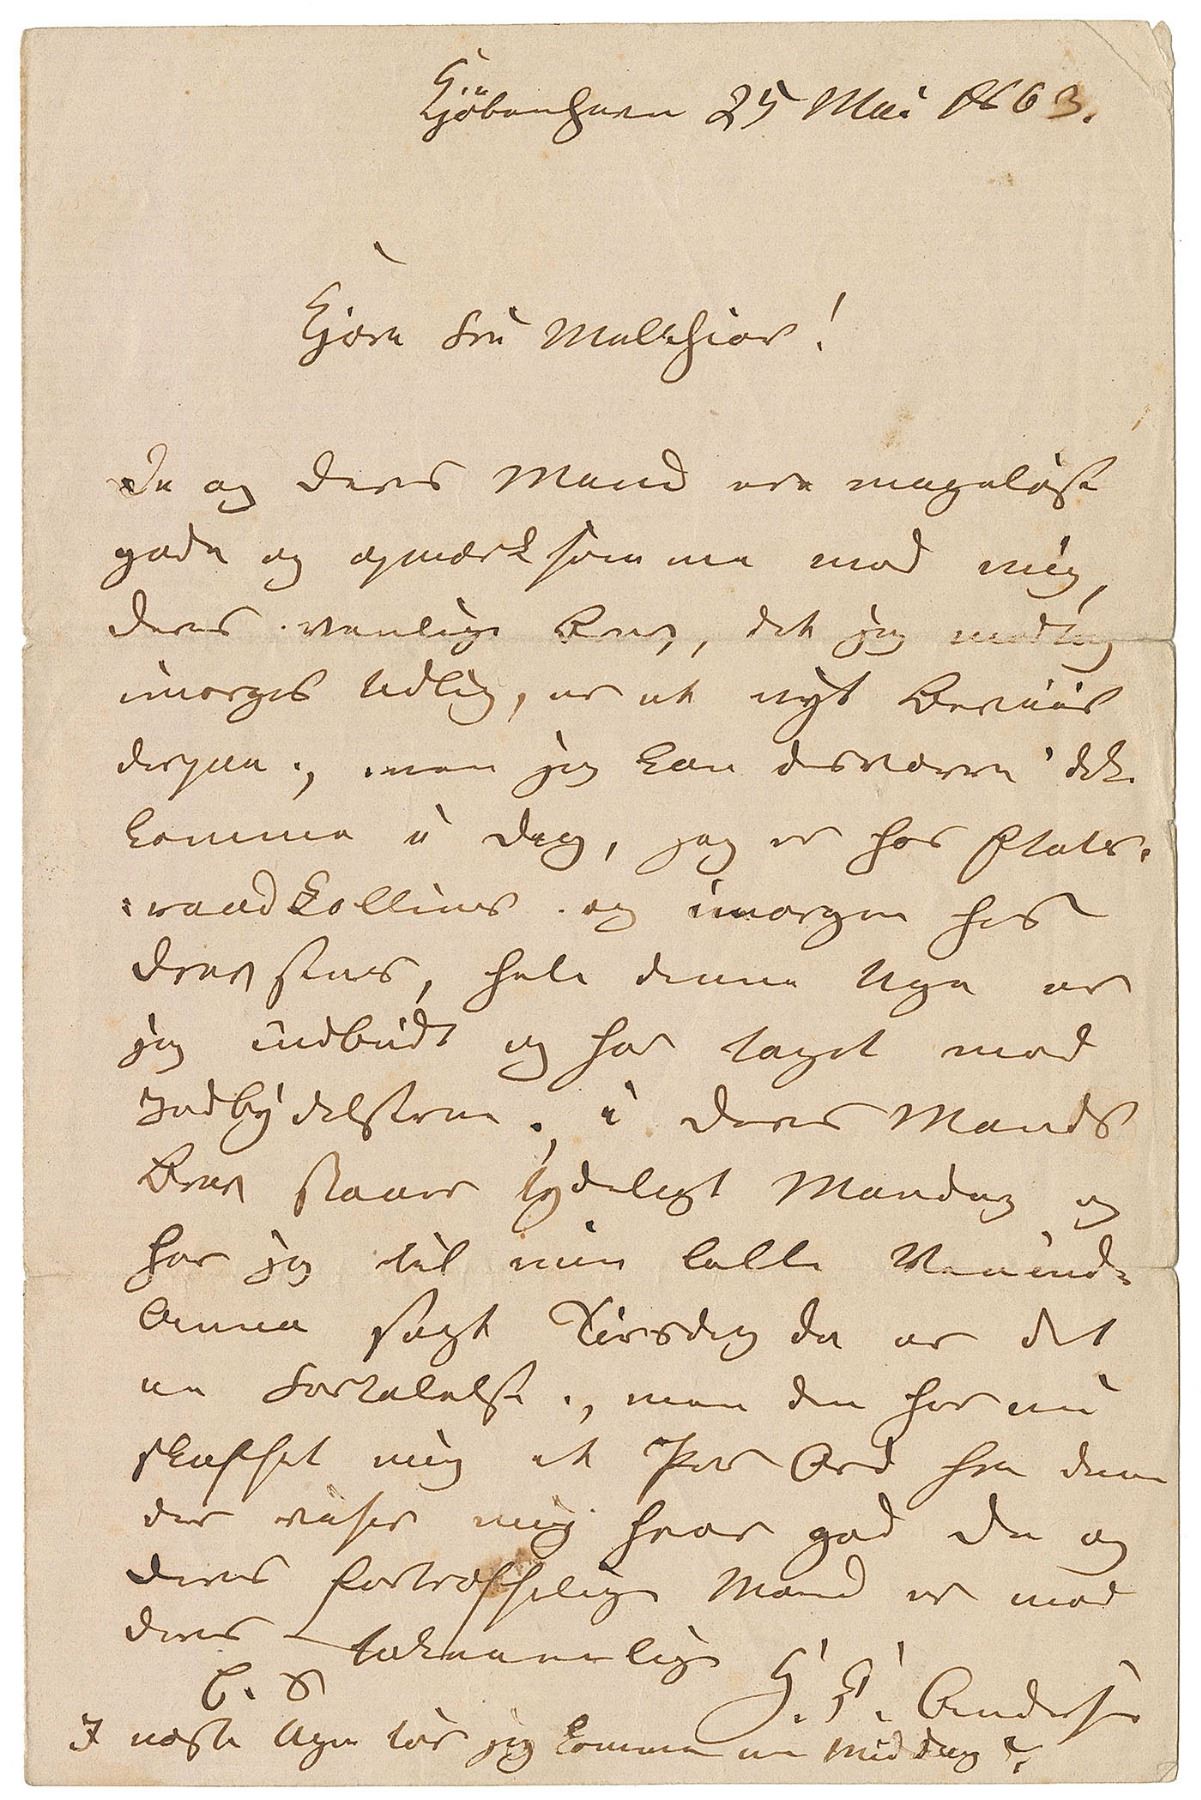 Kjöbenhavn 25 Mai 1863.
Kjære Fru Melchior!
De og Deres Mand ere mageløst
gode og opmærksomme mod mig,
Deres venlige Brev, det jeg modtog
imorges tidlig, er et nyt Beviis
derpaa, men jeg kan desværre ikke
komme i Dag, jeg er hos Etats-
raad Collins og imorgen hos
Drewsens, hele denne Uge er
jeg indbudt og har taget mod
Indbydelserne; i Deres Mands
Brev staaer tydeligt Mandag og
har jeg til min lille Veninde
Anna sagt Tirsdag da er det
en Fortalelse, men den har nu
skaffet mig et Par Ord fra dem
der viser mig hvor god De og
Deres fortræffelige Mand er mod
Deres taknemmelige
H. C. Andersen
P. S
I næste Uge tør jeg komme en Middag?